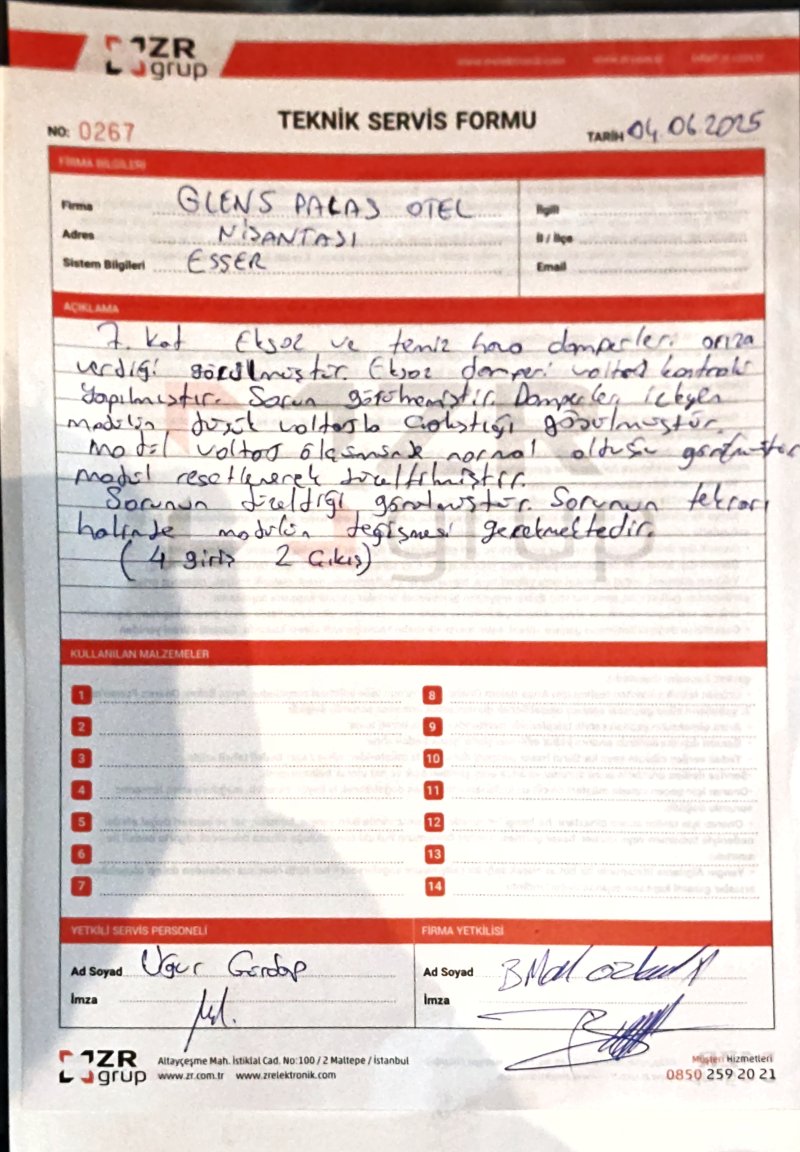 ZR
grup
TEKNİK SERVİS FORMU
NO: 0267
TARİH 04.06.2025
FİRMA BİLGİLERİ
Firma GLENS PALAS OTEL
Adres NİŞANTAŞI
Sistem Bilgileri ESSER
İlgili
İl / İlçe
Email
AÇIKLAMA
7. Kat Eksoz ve temiz hava damperleri arıza
verdiği görülmüştür. Eksoz damperi voltaj kontrolü
yapılmıştır. Sorun görülmemiştir. Damperler
modülün düşük voltajla çalıştığı görülmüştür.
Modül voltaj ölçümünde normal olduğu görülmüştür
modül resetlenerek düzeltilmiştir.
Sorunun düzeldiği görülmüştür. Sorunun tekrarı
halinde modülün değişmesi gerekmektedir.
(4 giriş 2 Çıkış)
ZR
grup
KULLANILAN MALZEMELER
1
2
3
4
5
6
7
8
9
10
11
12
13
14
YETKİLİ SERVİS PERSONELİ
Ad Soyad Uğur
İmza
FİRMA YETKİLİSİ
Ad Soyad
İmza
ZR
grup
Altayçeşme Mah. İstiklal Cad. No:100 / 2 Maltepe / İstanbul
www.zr.com.tr www.zrelektronik.com
Müşteri Hizmetleri
0850 259 20 21